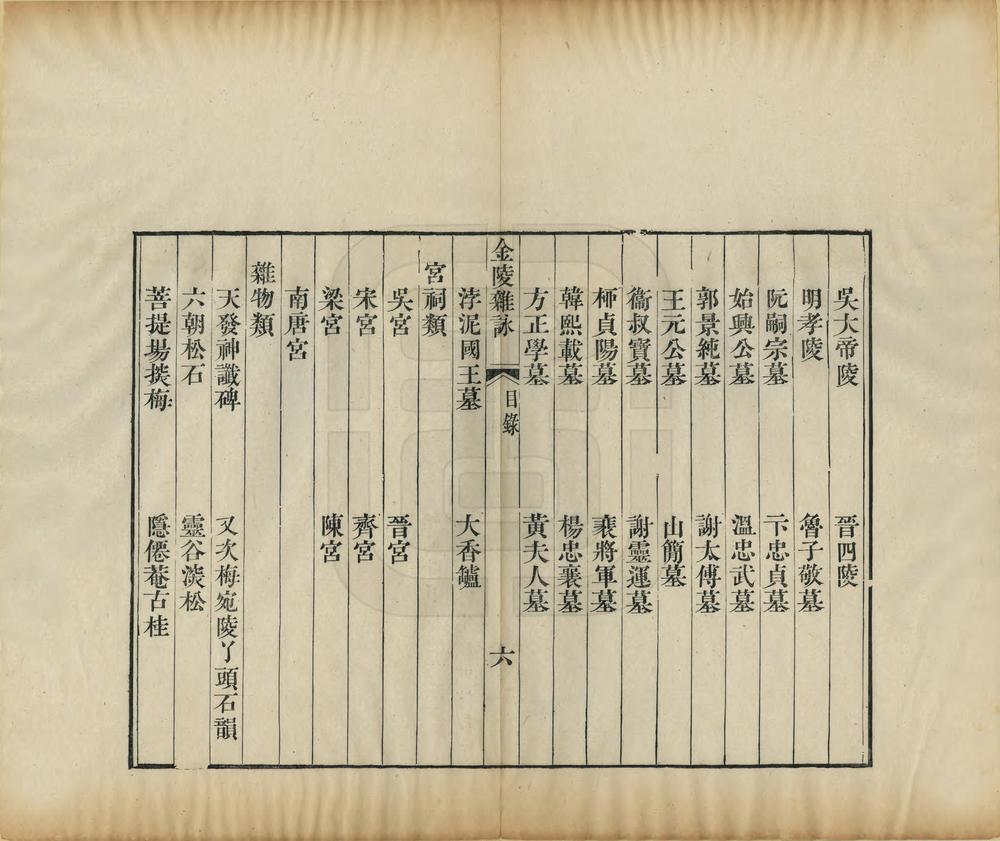 吳大帝陵　晉四陵
明孝陵　魯子敬墓
阮嗣宗墓　卞忠貞墓
始興公墓　溫忠武墓
郭景純墓　謝太傅墓
王元公墓　山簡墓
衞叔寶墓　謝靈運墓
桞貞陽墓　裴將軍墓
韓熙載墓　楊忠襄墓
方正學墓　黃夫人墓
金陵雜詠　目錄　六
浡泥國王墓　大香鑪
宮祠類
吳宮　晉宮
宋宮　齊宮
梁宮　陳宮
南唐宮
雜物類
天發神讖碑　又次梅宛陵丫頭石韻
六朝松石　靈谷淡松
菩提場掞梅　隱僊菴古桂